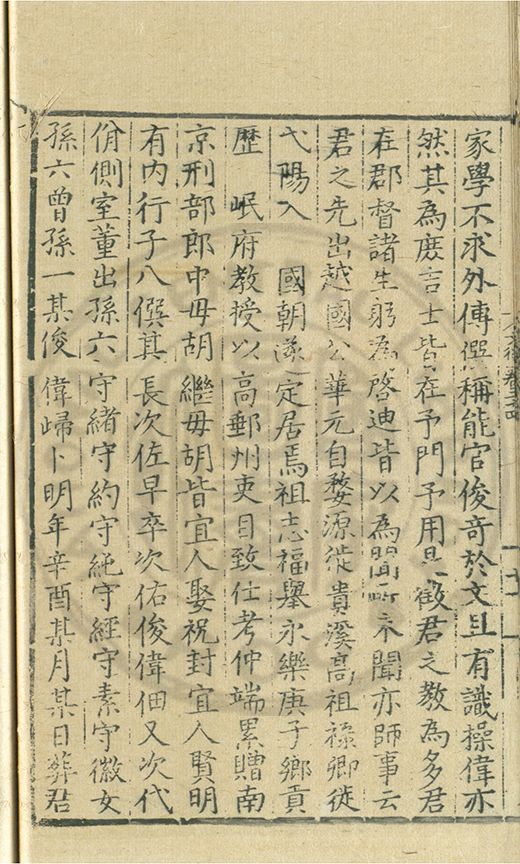 家學不求外傳僎稱能官俊竒於文且有識操偉亦
然其為庻吉士皆在予門予用是觀君之教為多君
在郡督諸生躬為啓迪皆以為聞所未聞亦師事云
君之先出越國公華元自婺源徙貴溪高祖祿卿徙
弋陽入　國朝遂定居焉祖志福舉永樂庚子鄉貢
歷　岷府教授以高郵州吏目致仕考仲端累贈南
京刑部郎中母胡繼母胡皆宜人娶祝封宜人賢明
有内行子八僎其長次佐早卒次佑俊偉佃又次代
佾側室董出孫六守緒守約守純守經守素守徽女
孫六曾孫一某俊偉歸卜明年辛酉某月某日葬君